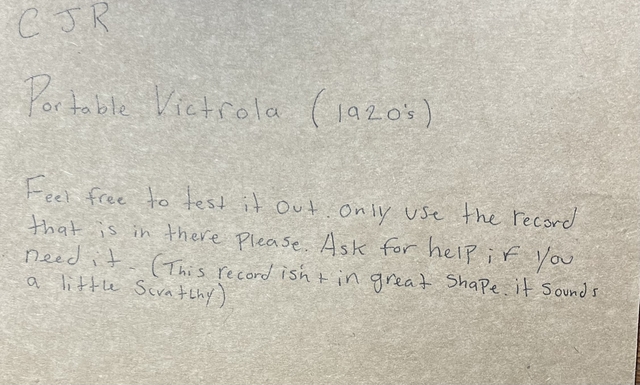 C J R
Portable Victrola (1920's)
Feel free to test it out. only use the record
that is in there please. Ask for help if you
need it. (This record isn't in great shape. it sounds
a little Scratchy)